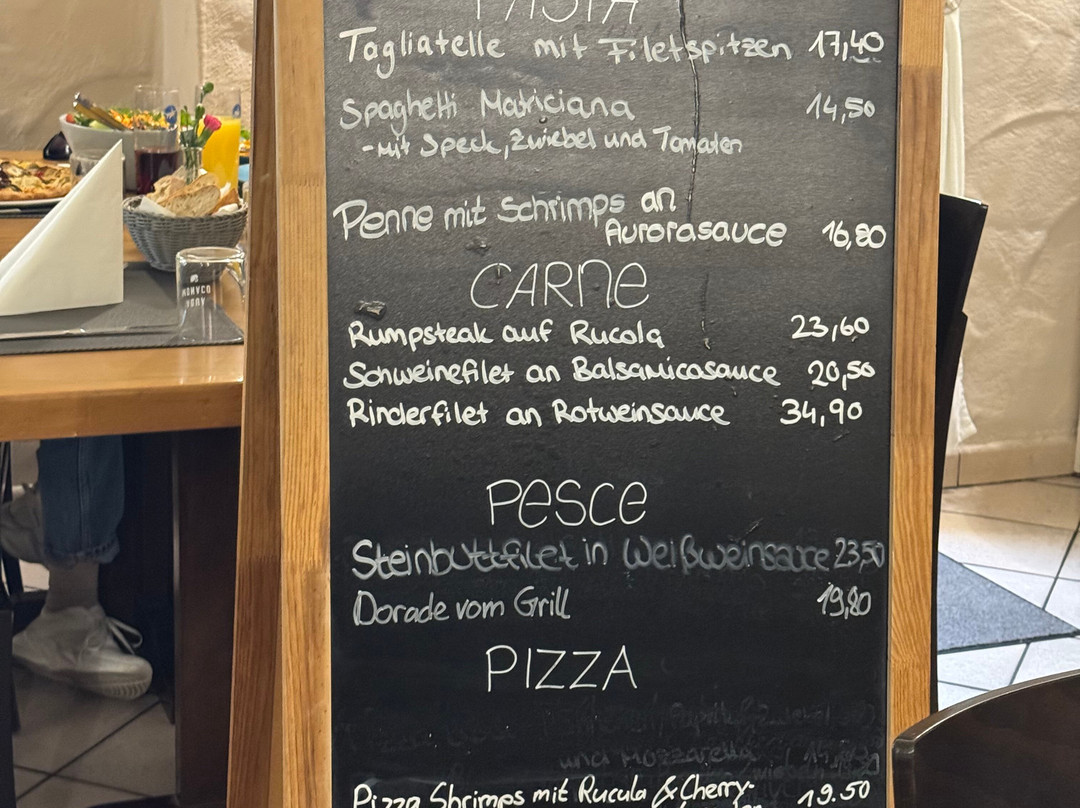 PASTA
Tagliatelle mit Filetspitzen 17,40
Spaghetti Matriciana 14,50
-mit Speck, Zwiebel und Tomaten
Penne mit Schrimps an
Aurorasauce 16,80
CARNE
Rumpsteak auf Rucola 23,60
Schweinefilet an Balsamicosauce 20,50
Rinderfilet an Rotweinsauce 34,90
PESCE
Steinbuttfilet in Weißweinsauce 23,50
Dorade vom Grill 19,80
PIZZA
und Mozzarella
Pizza Shrimps mit Rucula & Cherry- 19.50